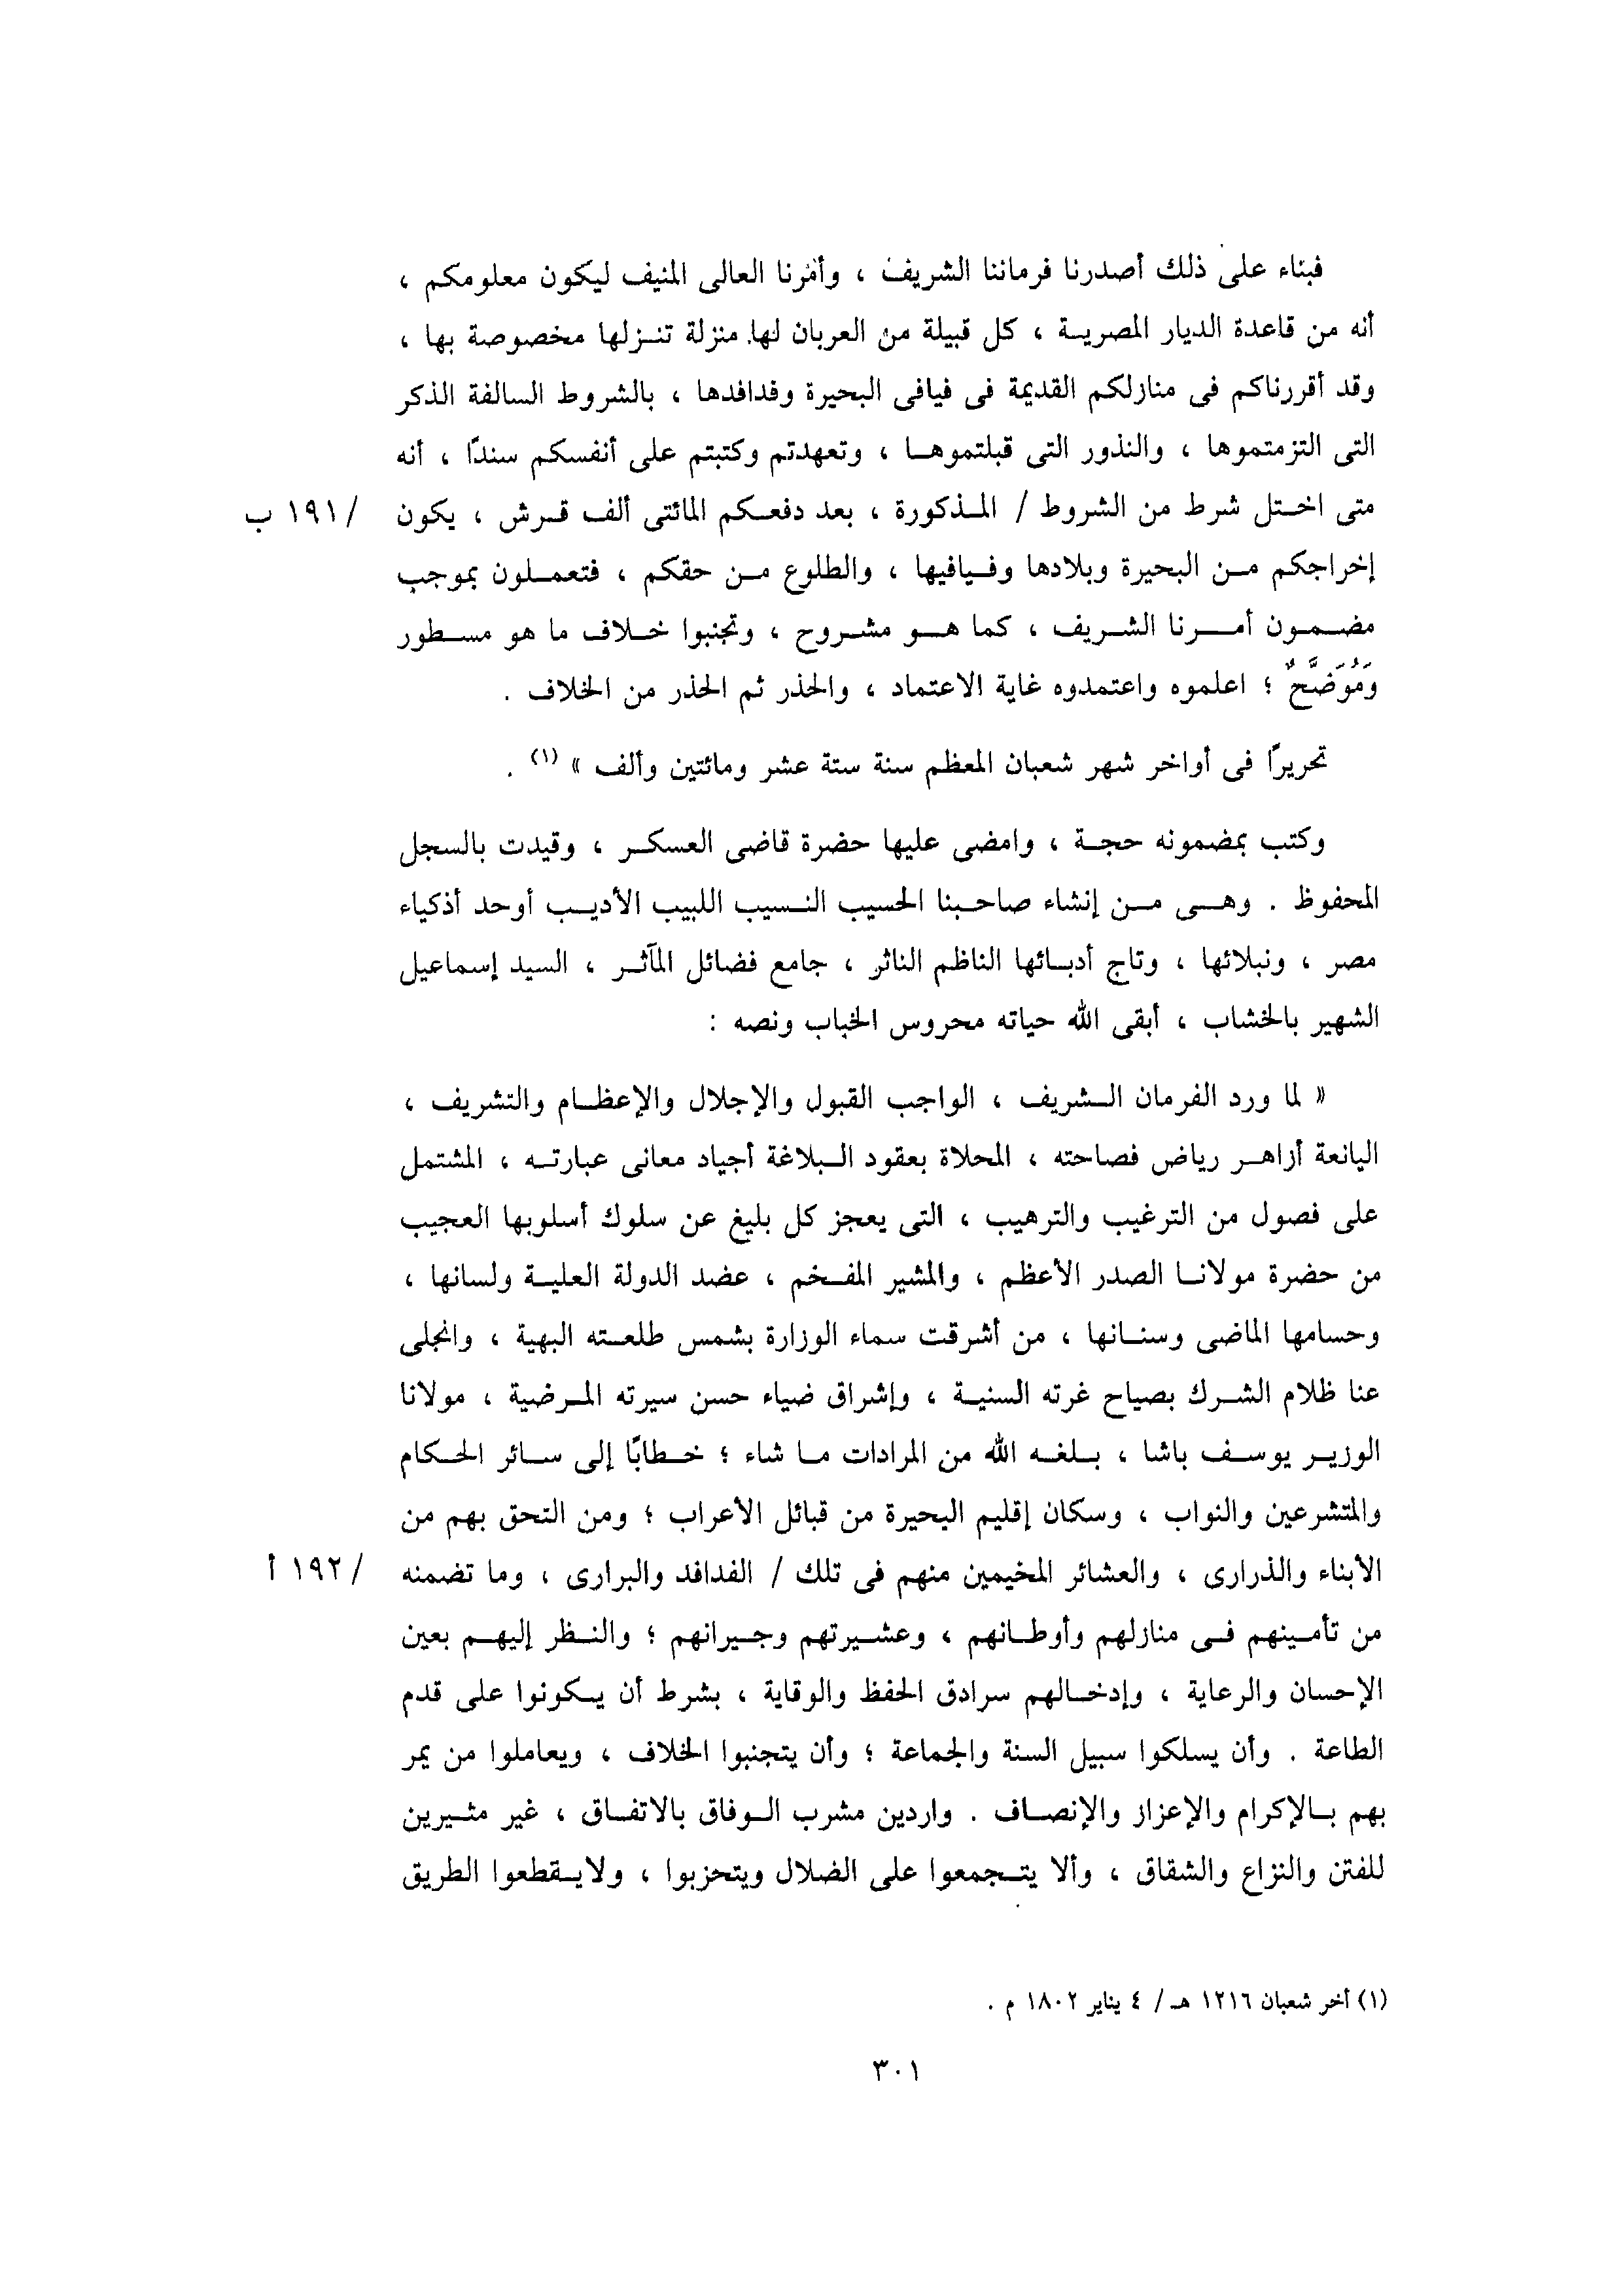 فبناء على ذلك أصدرنا فرماننا الشريف ، وأمرنا العالى المنيف ليكون معلومكم ،
أنه من قاعدة الديار المصرية ، كل قبيلة من العربان لها منزلة تنزلها مخصوصة بها ،
وقد أقررناكم فى منازلكم القديمة فى فيافى البحيرة وفدافدها ، بالشروط السالفة الذكر
التى التزمتموها ، والنذور التى قبلتموها ، وتعهدتم وكتبتم على أنفسكم سندًا ، أنه
متى اختل شرط من الشروط / المذكورة ، بعد دفعكم المائتى ألف قرش ، يكون /١٩١ ب
إخراجكم من البحيرة وبلادها وفيافيها ، والطلوع من حقكم ، فتعملون بموجب
مضمون أمرنا الشريف ، كما هو مشروح ، وتجنبوا خلاف ما هو مسطور
وَمُوَضَّحٌ ؛ اعلموه واعتمدوه غاية الاعتماد ، والحذر ثم الحذر من الخلاف .
تحريرًا فى أواخر شهر شعبان المعظم سنة ستة عشر ومائتين وألف » (١) .
وكتب بمضمونه حجة ، وامضى عليها حضرة قاضى العسكر ، وقيدت بالسجل
المحفوظ . وهى من إنشاء صاحبنا الحسيب النسيب اللبيب الأديب أوحد أذكياء
مصر ، ونبلائها ، وتاج أدبائها الناظم الناثر ، جامع فضائل المآثر ، السيد إسماعيل
الشهير بالخشاب ، أبقى الله حياته محروس الخباب ونصه :
« لما ورد الفرمان الشريف ، الواجب القبول والإجلال والإعظام والتشريف ،
اليانعة أزاهر رياض فصاحته ، المحلاة بعقود البلاغة أجياد معانى عبارته ، المشتمل
على فصول من الترغيب والترهيب ، التى يعجز كل بليغ عن سلوك أسلوبها العجيب
من حضرة مولانا الصدر الأعظم ، والمشير المفخم ، عضد الدولة العلية ولسانها ،
وحسامها الماضى وسنانها ، من أشرقت سماء الوزارة بشمس طلعته البهية ، وانجلى
عنا ظلام الشرك بصياح غرته السنية ، وإشراق ضياء حسن سيرته المرضية ، مولانا
الوزير يوسف باشا ، بلغه الله من المرادات ما شاء ؛ خطابًا إلى سائر الحكام
والمتشرعين والنواب ، وسكان إقليم البحيرة من قبائل الأعراب ؛ ومن التحق بهم من
الأبناء والذرارى ، والعشائر المخيمين منهم فى تلك / الفدافد والبرارى ، وما تضمنه /١٩٢ أ
من تأمينهم فى منازلهم وأوطانهم ، وعشيرتهم وجيرانهم ؛ والنظر إليهم بعين
الإحسان والرعاية ، وإدخالهم سرادق الحفظ والوقاية ، بشرط أن يكونوا على قدم
الطاعة . وأن يسلكوا سبيل السنة والجماعة ؛ وأن يتجنبوا الخلاف ، ويعاملوا من يمر
بهم بالإكرام والإعزاز والإنصاف . واردين مشرب الوفاق بالاتفاق ، غير مثيرين
للفتن والنزاع والشقاق ، وألا يتجمعوا على الضلال ويتحزبوا ، ولايقطعوا الطريق
(١) أخر شعبان ١٢١٦ هـ / ٤ يناير ١٨٠٢ م .
٣٠١